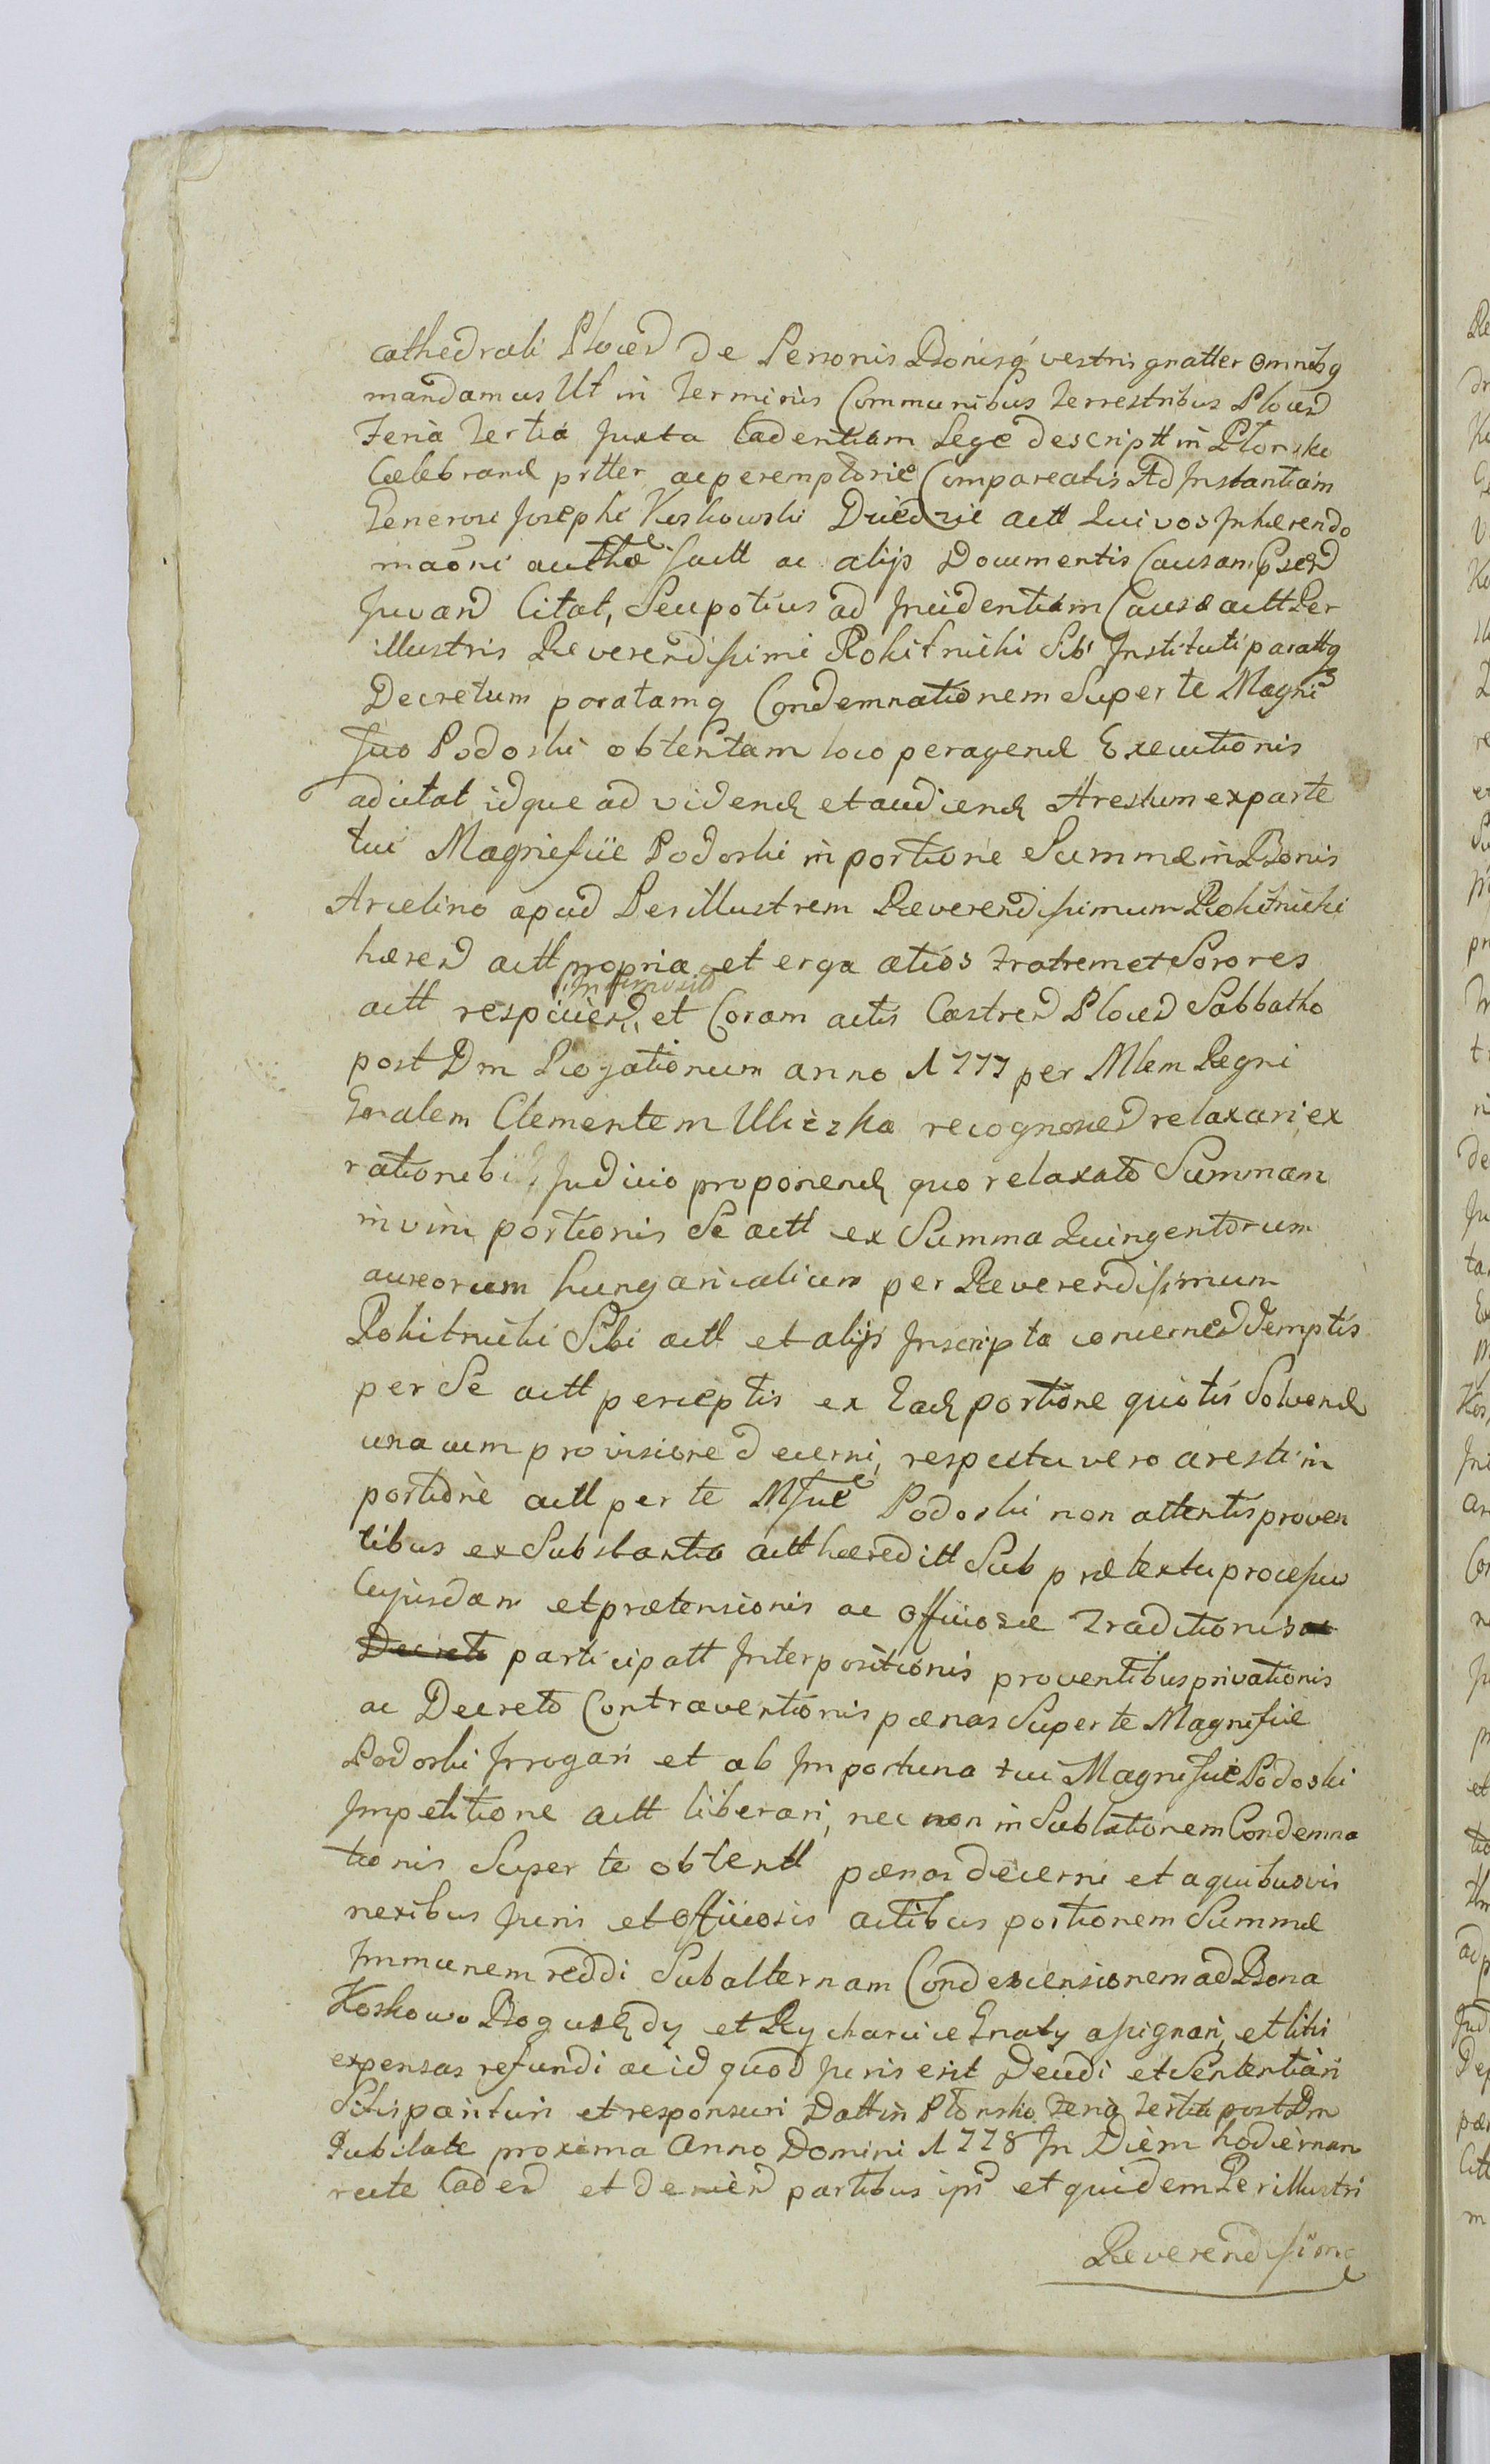 cathedrali Plocen de Personis Bonisq vestris gnatter omnibq
mandamus Ut in Terminis Communibus Terrestribus Plocen
Feria Tertia Juxta Cadentiam Lege descriptt in Płonsko
Celebrand ptter ac peremptorie Compareatis Ad Instantiam
Generosi Josephi Koskowski Dziedzic actt Qui vos Inhærendo
actt ac alijs Documentis Causam
Juvand Citat, Seu potius ad Incidentiam Causæ actt Per
illustris Reverendissimi Rokitnicki Sibi Instituti paratq
Decretum paratamq Condemnationem Super te Magni
fico Podoski obtentam loco peragend Executionis
adcitat idque ad videndq et audiendq Arestum ex parte
tui Magnifice Podoski in portione Summæ in Bonis
Arcelino apud Perillustrem Reverendissimum Rokitnicki
hæren actt propriæ et erga alios Fratrem et Sorores
actt respicien, et Coram actis Castren Plocen Sabbatho
post Dm Rogationum anno 1777 per Mlem Regni
Gnralem Clementem Uliczka recognoscen relaxari, ex
rationib Judicio proponendq quo relaxato Summam
in vim portionis Se actt ex Summa Quingentorum
aureorum hungaricalium per Reverendissimum
Rokitnicki Sibi actt et alijs Inscripta concernen demptis
per Se actt perceptis ex Eadq portione quotis Solvend
una cum provisione decerni, respectu vero aresti in
portione actt per te Mfice Podoski non attentis proven
tibus ex Substantia actt hæreditt Sub prætextu processus
Cujusdam et prætensionis ac officiosæ Traditionis ac
Decreti participatt Interpositionis proventibus privationis
ac Decreto Contraventionis pænas Super te Magnifice
Podoski Irrogari et ab Importuna tui Magnifice Podoski
Impetitione actt liberari, nec non in Sublationem Condemna
tionis Super te obtentt pænas decerni et a quibusvis
nexibus Juris et officiosis actibus portionem Summæ
Immunem reddi Subalternam Condescensionem ad Bona
Koskowo Bogusędy et Rycharcice Gnaty assignari, et litis
expensas refundi ac id quod Juris erit Decidi et Sententiari
Sitis parituri et responsuri Datt in Płonsko Feria Tertia post Dm
Jubilate proxima Anno Domini 1778 In Diem hodiernam
recte Caden et devien partibus ipś et quidem Perillustri
Reverendissimo